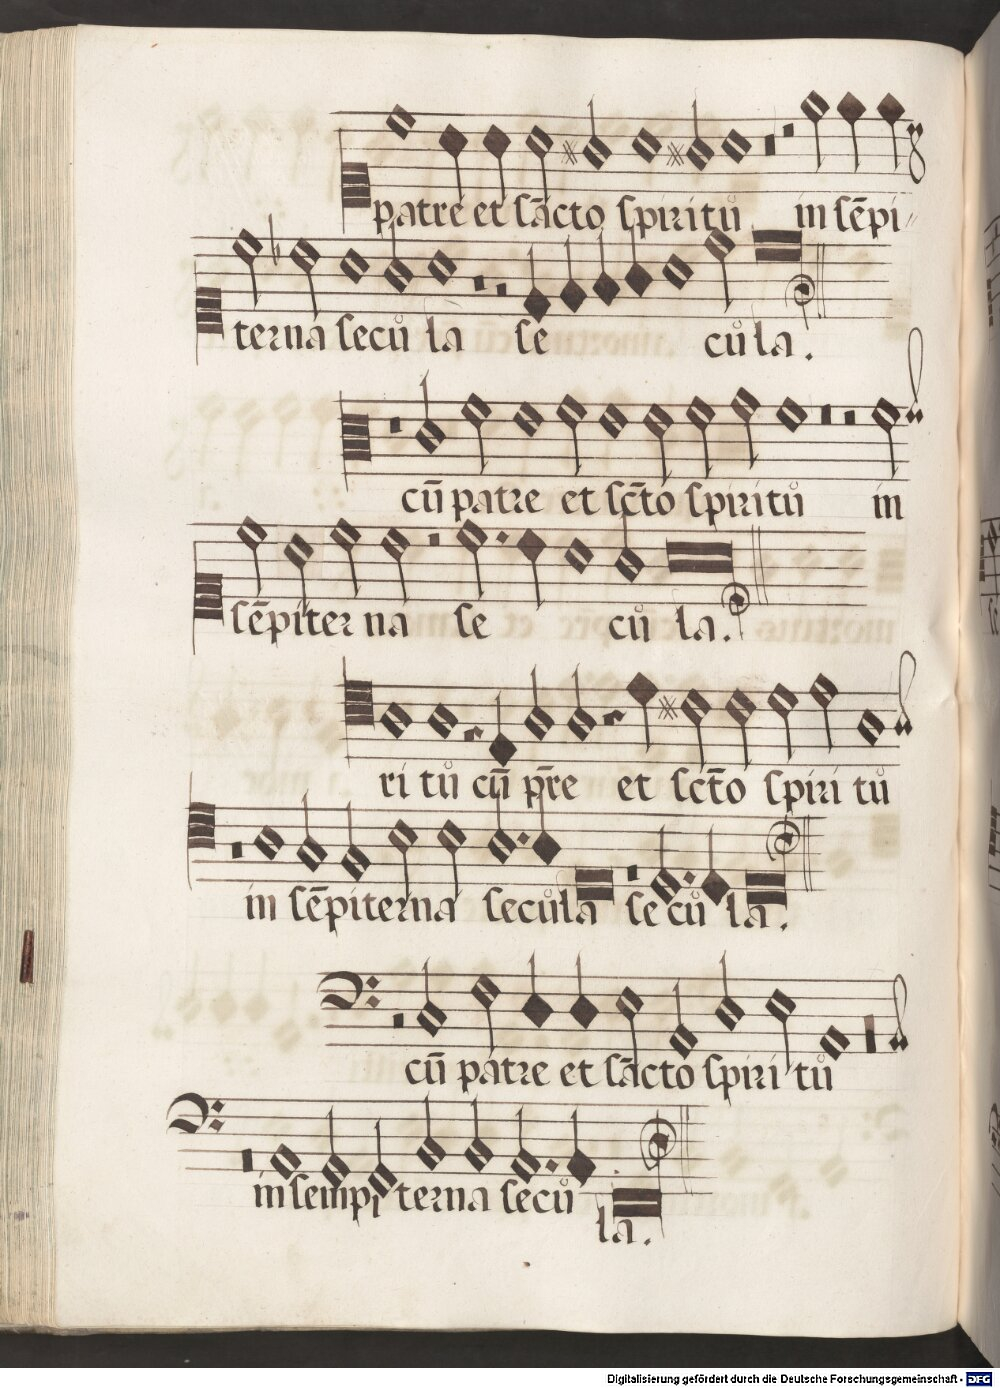 patre et sc̄acto spiritů in sēpi
terna seců la se ců la.
cū patre et sc̄to spiritů in
sēpiterna se ců la.
ri tů cū pr̄e et sct̄o spiri tů
in sēpiterna secůla se ců la.
cū patre et sāctо spiri tů
in sempi terna seců
la.
Digitalisierung gefördert durch die Deutsche Forschungsgemeinschaft - DFG